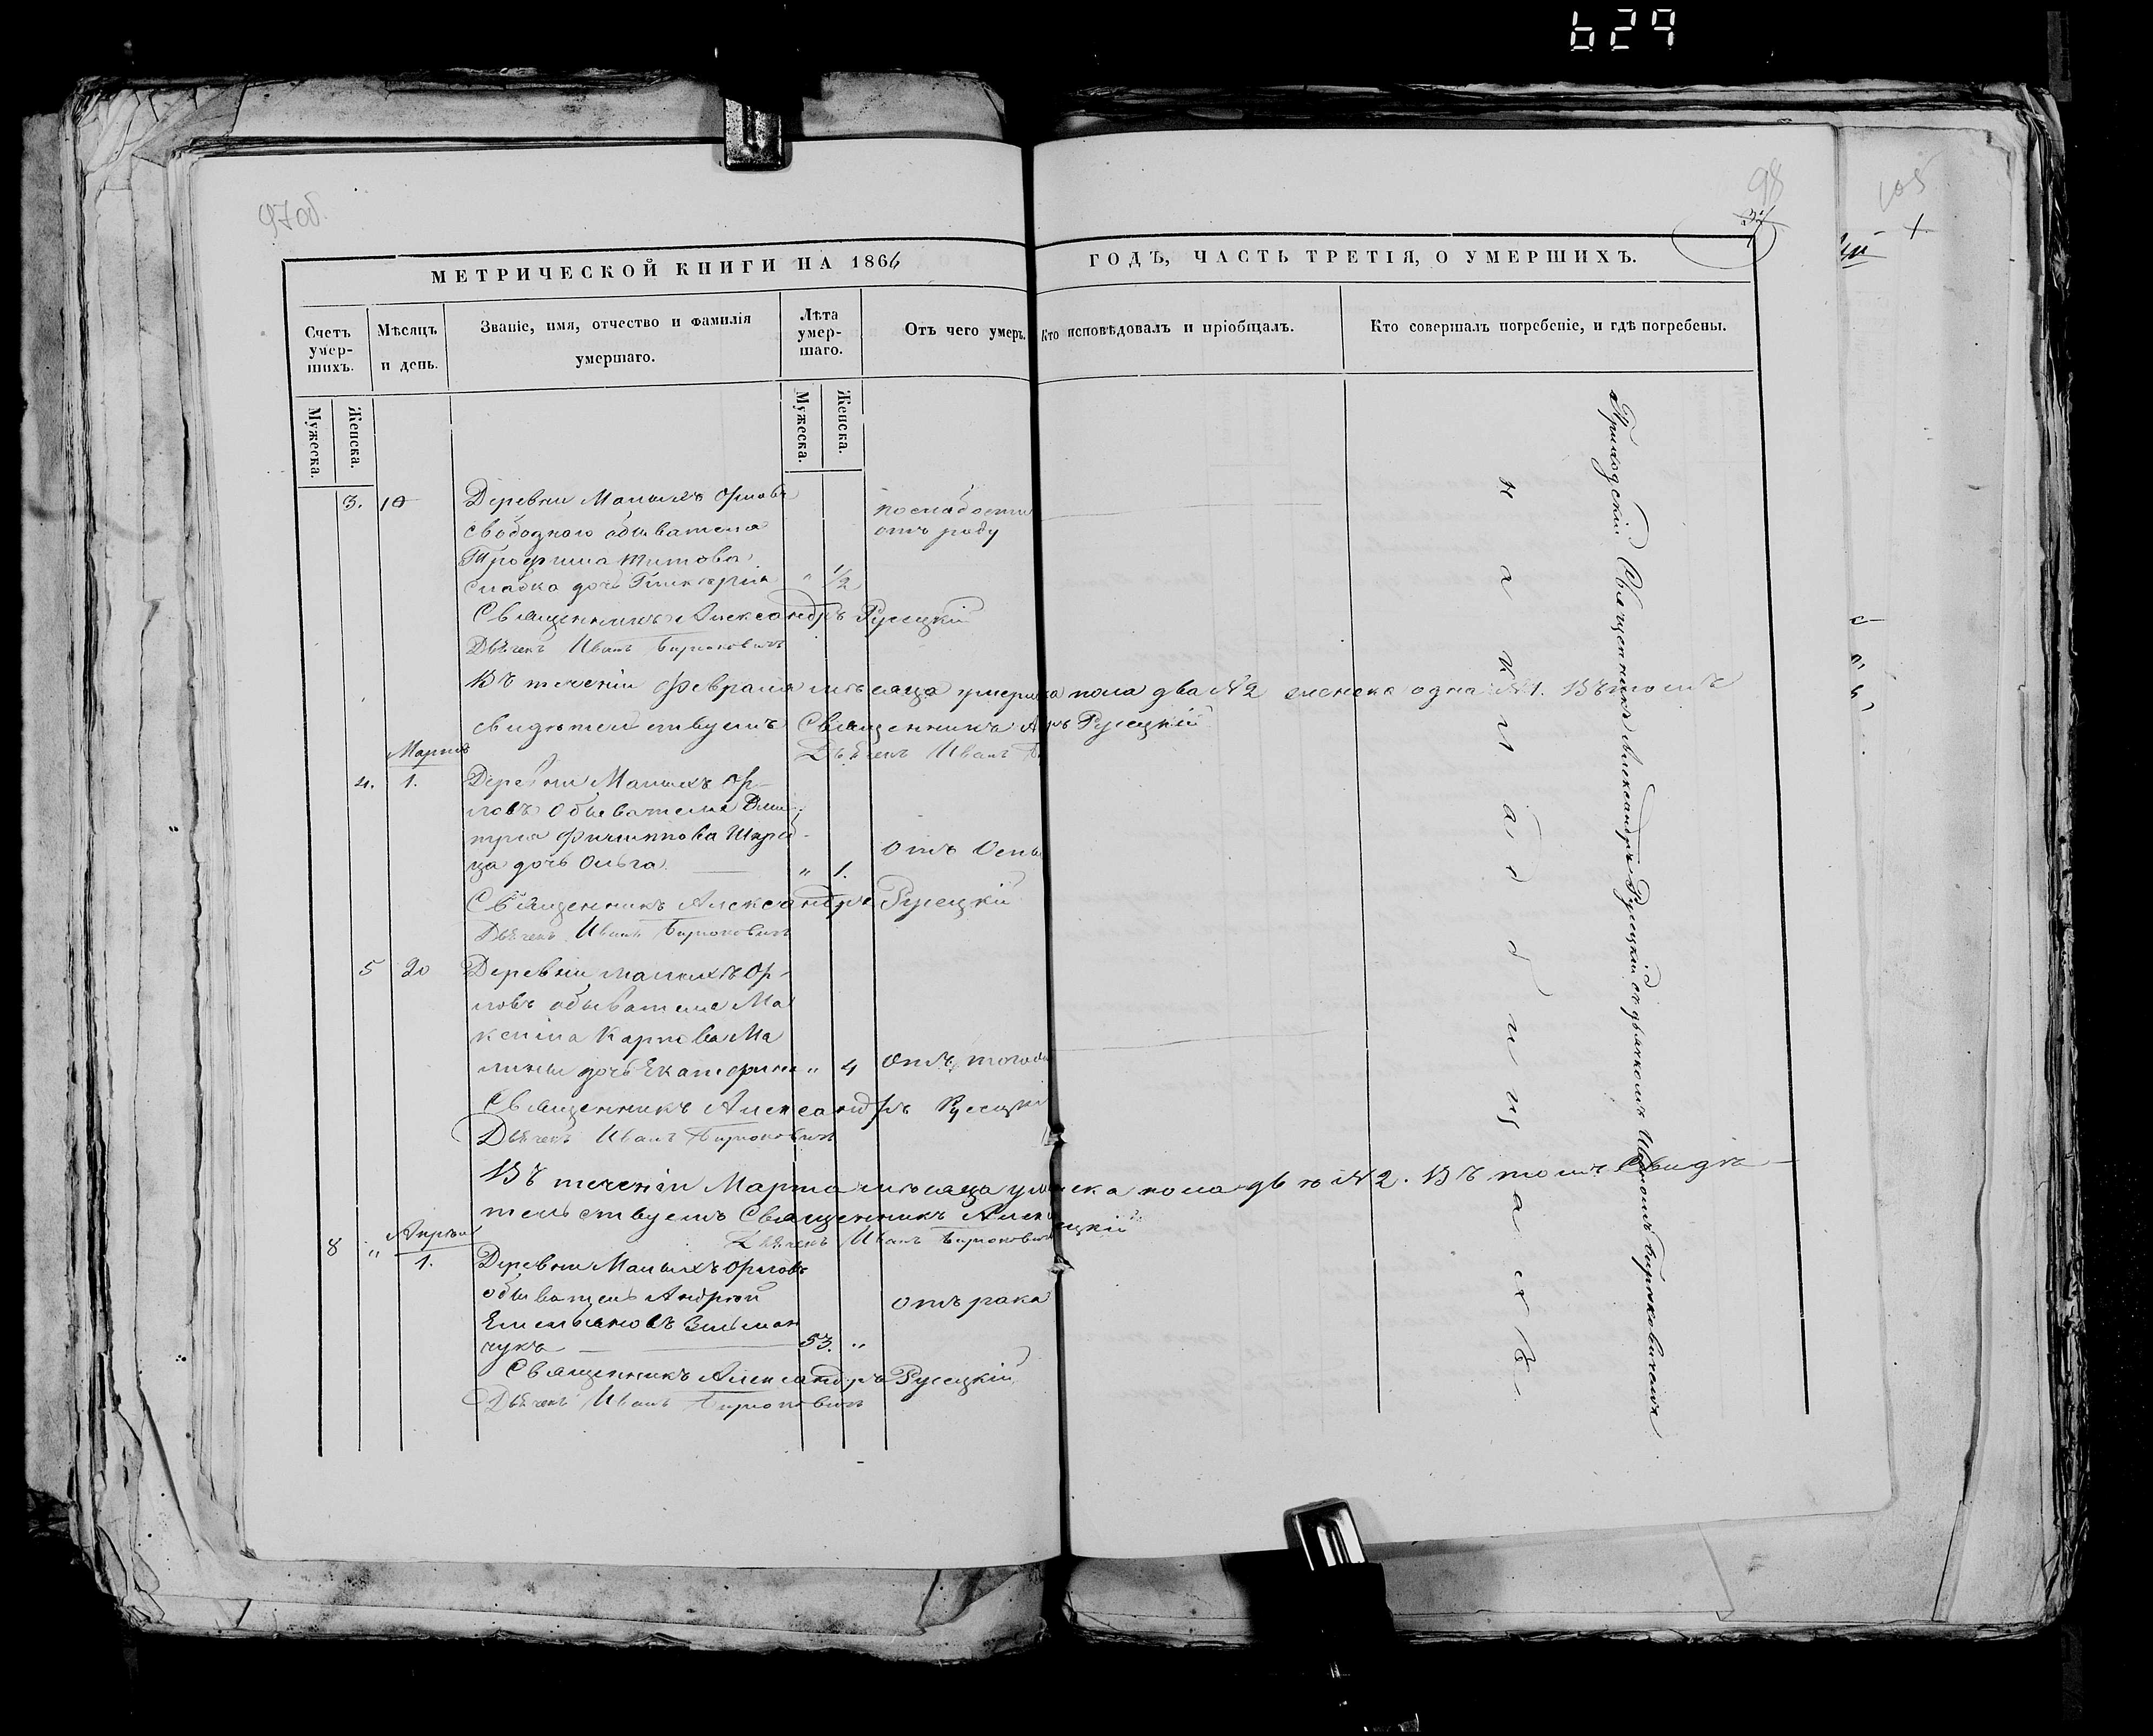 629
97об.
98
105
МЕТРИЧЕСКОЙ КНИГИ НА 1866
ГОДЪ, ЧАСТЬ ТРЕТІЯ, О УМЕРШИХЪ.
Счетъ умер-шихъ.
Мѣсяцъ и день.
Званіе, имя, отчество и фамилія умершаго.
Лѣта умер-шаго.
Отъ чего умеръ.
Кто исповѣдовалъ и пріобщалъ.
Кто совершалъ погребеніе, и гдѣ погребены.
Мужеска.
Женска.
Мужеска.
Женска.
3. 10 Деревни Малыхъ Орловъ
свободнаго обывателя
Трофима Титова
дочь Гликерія " 1/2
по слабости
отъ роду
Священникъ Александръ Русецкій
Дьячекъ Иванъ Бирюковичъ
Въ теченіи Февраля мѣсяца пола два №2 женска одна №1. Въ томъ
свидѣтельствуемъ Священникъ Русецкій
Дьячекъ Иванъ
Марта
4. 1. Деревни Малыхъ Ор-
ловъ обывателя Дми-
трія Филиппова
дочь Ольга " 1. отъ Оспы
Священникъ Александръ Русецкій
Дьячекъ Иванъ Бирюковичъ
5 20 Деревни Малыхъ Ор-
ловъ обывателя Ма
ксима Карпова Ма
лины дочь Екатерина " 4 отъ
Священникъ Александръ Русецкій
Дьячекъ Иванъ Бирюковичъ
Въ теченіи Марта мѣсяца пола двѣ №2. Въ томъ свидѣ-
тельствуемъ Священникъ
Дьячекъ Иванъ Бирюковичъ
Апрѣля
8 " 1. Деревни Малыхъ Орловъ
обыватель Андрей
Емельяновъ
чукъ 53. " отъ рака
Священникъ Александръ Русецкій
Дьячекъ Иванъ Бирюковичъ
на кладбищахъ.
Приходскій Священникъ Александръ Русецкій съ дьячкомъ Иваномъ Бирюковичемъ